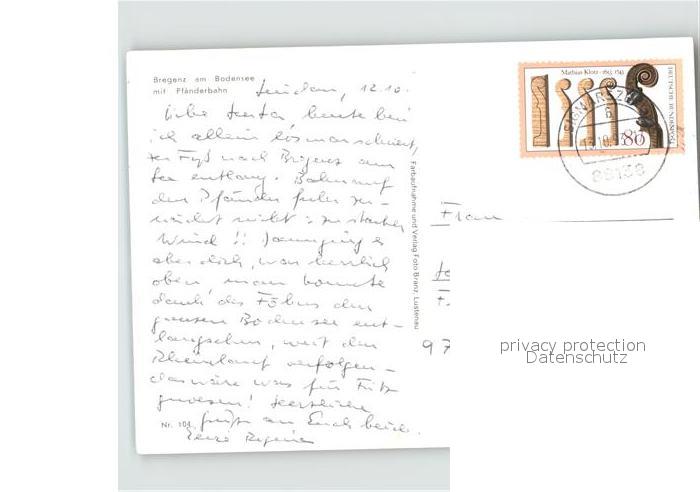 Bregenz am Bodensee
mit Pfänderbahn
Lindau, 12.10.
Liebe Herta, heute bin
ich allein losmarschiert,
zu Fuß nach Bregenz am
See entlang. Bahn auf
den Pfänder fuhr zu-
nächst nicht: zu starker
Wind!! Dann ging es
aber doch, war herrlich
oben, man konnte
dank des Föhns den
ganzen Bodensee ent-
langsehen, weit den
Rheinlauf verfolgen –
das wäre was für Fritz
gewesen! Herzliche
Grüße an Euch beide.
Regina
Nr. 104
Farbaufnahme und Verlag Foto Branz, Lustenau
Mathias Klotz · 1653-1743
DEUTSCHE BUNDESPOST
80
Frau
97
privacy protection
Datenschutz